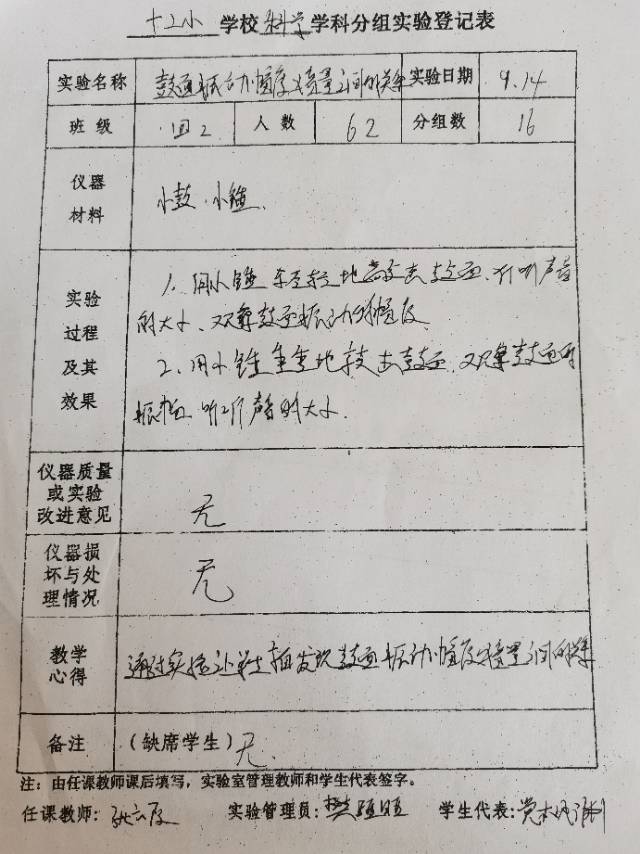 十二小学校科学学科分组实验登记表
实验名称 鼓面振动幅度与音量之间的关系 实验日期 9.14
班级 四2 人数 62 分组数 16
仪器
材料
小鼓、小锤
实验
过程
及其
效果
1、用小锤轻轻地敲击鼓面,听听声音
的大小,观察鼓面振动的幅度
2、用小锤重重地敲击鼓面,观察鼓面的
振幅,听听声音的大小.
仪器质量
或实验
改进意见
无
仪器损
坏与处
理情况
无
教学
心得
通过实验让学生发现鼓面振动幅度与音量之间的关系
备注 (缺席学生)无.
注:由任课教师课后填写,实验室管理教师和学生代表签字。
任课教师: 实验管理员:樊 学生代表: